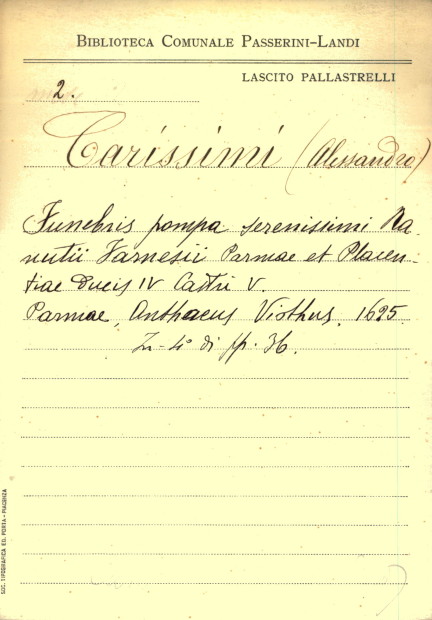 BIBLIOTECA COMUNALE PASSERINI-LANDI
LASCITO PALLASTRELLI
2.
Carissimi (Alessandro)
Funebris pompa serenissimi Ra-
nutii Farnesii Parmae et Placen-
tiae Ducis IV Castri V.
Parmae, Anthaeus Viothus. 1695.
In-4° di pp. 36.
SOC. TIPOGRAFICA ED. PORTA - PIACENZA